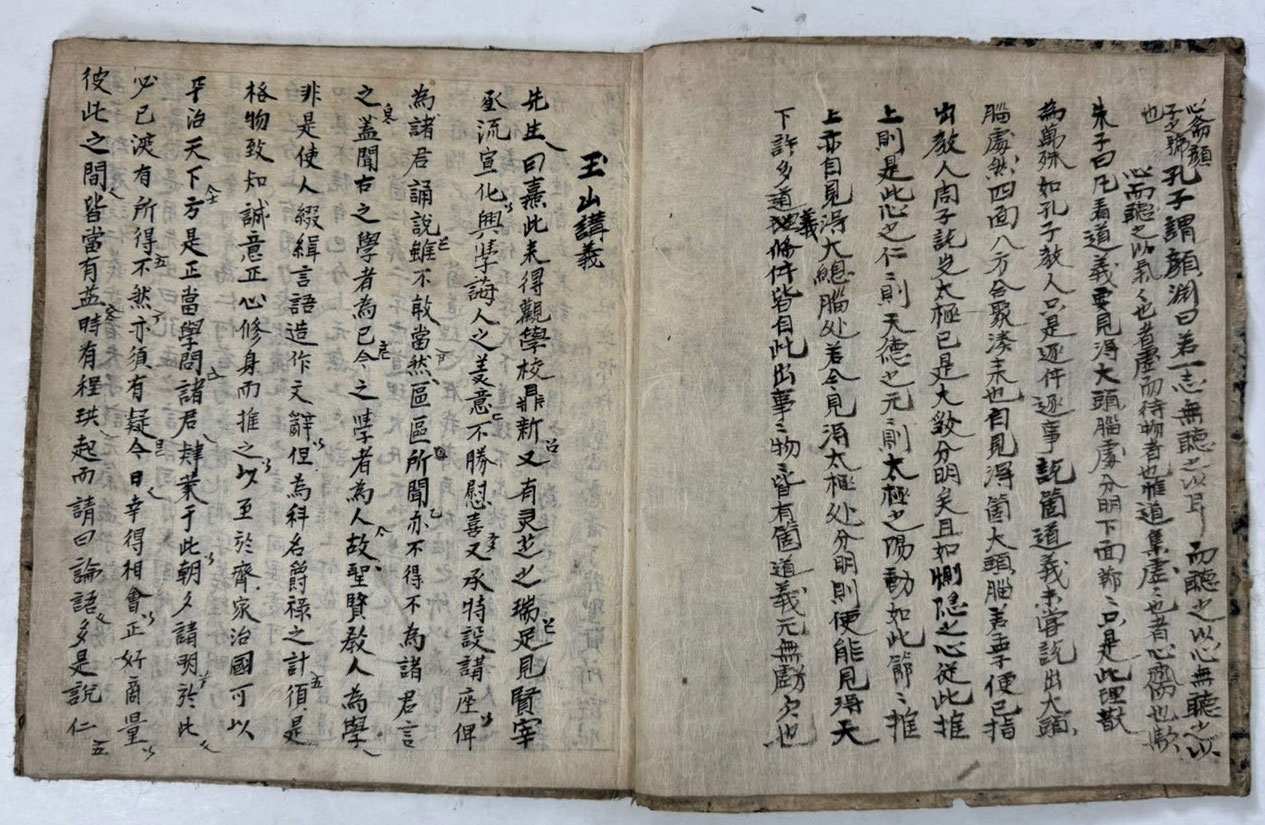 心斎顔
子之号
也
孔子謂顔渊曰若一志無聽之以耳而聽之以心無聽之以
心而聽之以氣〻也者虚而待物者也惟道集虚〻也者心齋也
朱子曰凡看道義要見淂大頭腦處分明下面莭〻只是此理散
為萬殊如孔子教人只是逐件逐事說箇道義未嘗說出大頭
腦處然四面八方合聚湊来也自見淂箇大頭腦若孟子便已指
出教人周子說出太極已是大段分明矣且如惻隐之心従此推
上則是此心之仁〻則天德之元〻則太極之陽動如此節〻推
上亦自見淂大總腦处若今見淂太極处分明則便能見淂天
下許多道理條件皆自此出事〻物〻皆有箇道義元無虧欠也
義
玉山講義
先生曰熹此来得觀學校鼎新又有灵芝之瑞足見賢宰
承流宣化興學誨人之美意不勝慰喜又承特設講座俾
為諸君誦説雖不敢當然區區所聞亦不得不為諸君言
之盖聞古之學者為己今之學者為人故聖賢教人為學
非是使人綴緝言語造作文辭但為科名爵祿之計須是
格物致知誠意正心修身而推之以至於齊家治國可以
平治天下方是正當學問諸君肄業于此朝夕講明於此
必已深有所得不然亦須有疑今日幸得相會正好商量
彼此之間皆當有益時有程珙起而請曰論語多是説仁